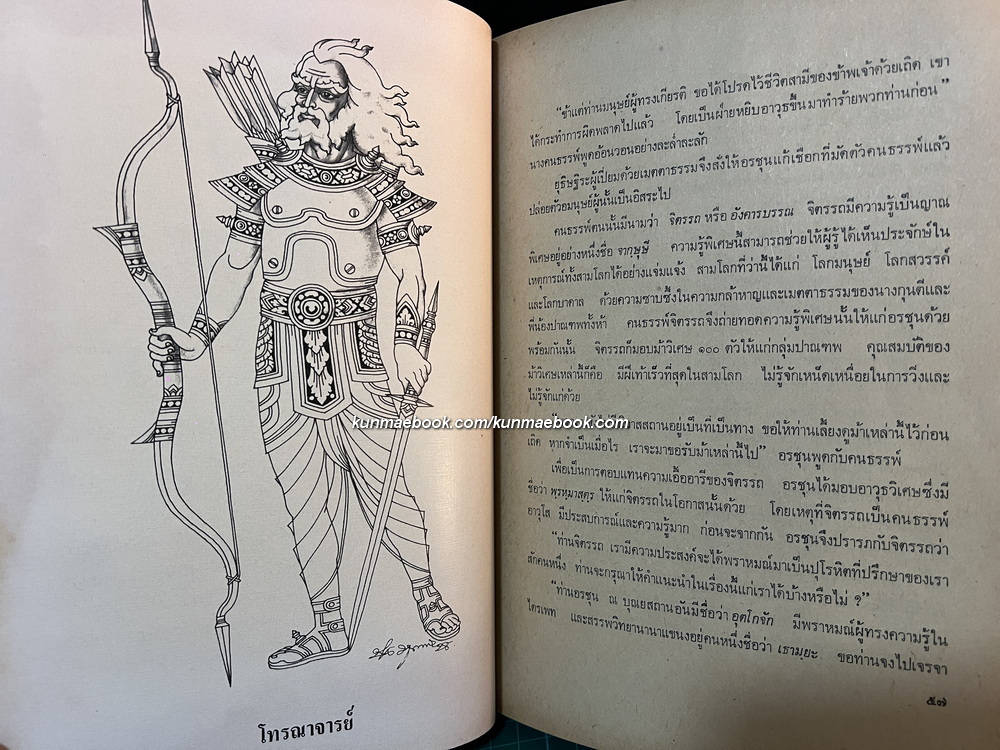 โทรณาจารย์
“ข้าแต่ท่านมนุษย์ผู้ทรงเกียรติ ขอได้โปรดไว้ชีวิตสามีของข้าพเจ้าด้วยเถิด เขา
ได้กระทำการผิดพลาดไปแล้ว โดยเป็นฝ่ายหยิบอาวุธขึ้นมาทำร้ายพวกท่านก่อน”
นางคนธรรพ์พูดอ้อนวอนอย่างละล่ำละลัก
ยุธิษฐิระผู้เปี่ยมด้วยเมตตาธรรมจึงสั่งให้อรชุนแก้เชือกที่มัดตัวคนธรรพ์แล้ว
ปล่อยตัวอมนุษย์ผู้นั้นเป็นอิสระไป
คนธรรพ์ตนนั้นมีนามว่า จิตรรถ หรือ อังคารบรรณ จิตรรถมีความรู้เป็นญาณ
พิเศษอยู่อย่างหนึ่งชื่อ จากษุษี ความรู้พิเศษนี้สามารถช่วยให้ผู้รู้ได้เห็นประจักษ์ใน
เหตุการณ์ทั้งสามโลกได้อย่างแจ่มแจ้ง สามโลกที่ว่านี้ได้แก่ โลกมนุษย์ โลกสวรรค์
และโลกบาดาล ด้วยความซาบซึ้งในความกล้าหาญและเมตตาธรรมของนางกุนตีและ
พี่น้องปาณฑพทั้งห้า คนธรรพ์จิตรรถจึงถ่ายทอดความรู้พิเศษนั้นให้แก่อรชุนด้วย
พร้อมกันนั้น จิตรรถก็มอบม้าวิเศษ ๑๐๐ ตัวให้แก่กลุ่มปาณฑพ คุณสมบัติของ
ม้าวิเศษเหล่านี้ก็คือ มีฝีเท้าเร็วที่สุดในสามโลก ไม่รู้จักเหน็ดเหนื่อยในการวิ่งและ
ไม่รู้จักแก่ด้วย
kunmaebook.com/kunmaebook.com
อยู่เป็นที่เป็นทาง ขอให้ท่านเลี้ยงดูม้าเหล่านี้ไว้ก่อน
เถิด หากจำเป็นเมื่อไร เราจะมาขอรับม้าเหล่านี้ไป” อรชุนพูดกับคนธรรพ์
เพื่อเป็นการตอบแทนความเอื้ออารีของจิตรรถ อรชุนได้มอบอาวุธวิเศษซึ่งมี
ชื่อว่า พฺรหฺมาสตฺร ให้แก่จิตรรถในโอกาสนั้นด้วย โดยเหตุที่จิตรรถเป็นคนธรรพ์
อาวุโส มีประสบการณ์และความรู้มาก ก่อนจะจากกัน อรชุนจึงปรารภกับจิตรรถว่า
“ท่านจิตรรถ เรามีความประสงค์จะได้พราหมณ์มาเป็นปุโรหิตที่ปรึกษาของเรา
สักคนหนึ่ง ท่านจะกรุณาให้คำแนะนำในเรื่องนี้แก่เราได้บ้างหรือไม่ ?”
“ท่านอรชุน ณ บุณยสถานอันมีชื่อว่า อุตโกจัก มีพราหมณ์ผู้ทรงความรู้ใน
ไตรเพท และสรรพวิทยานานาแขนงอยู่คนหนึ่งชื่อว่า เธามฺยะ ขอท่านจงไปเจรจา
๕๗